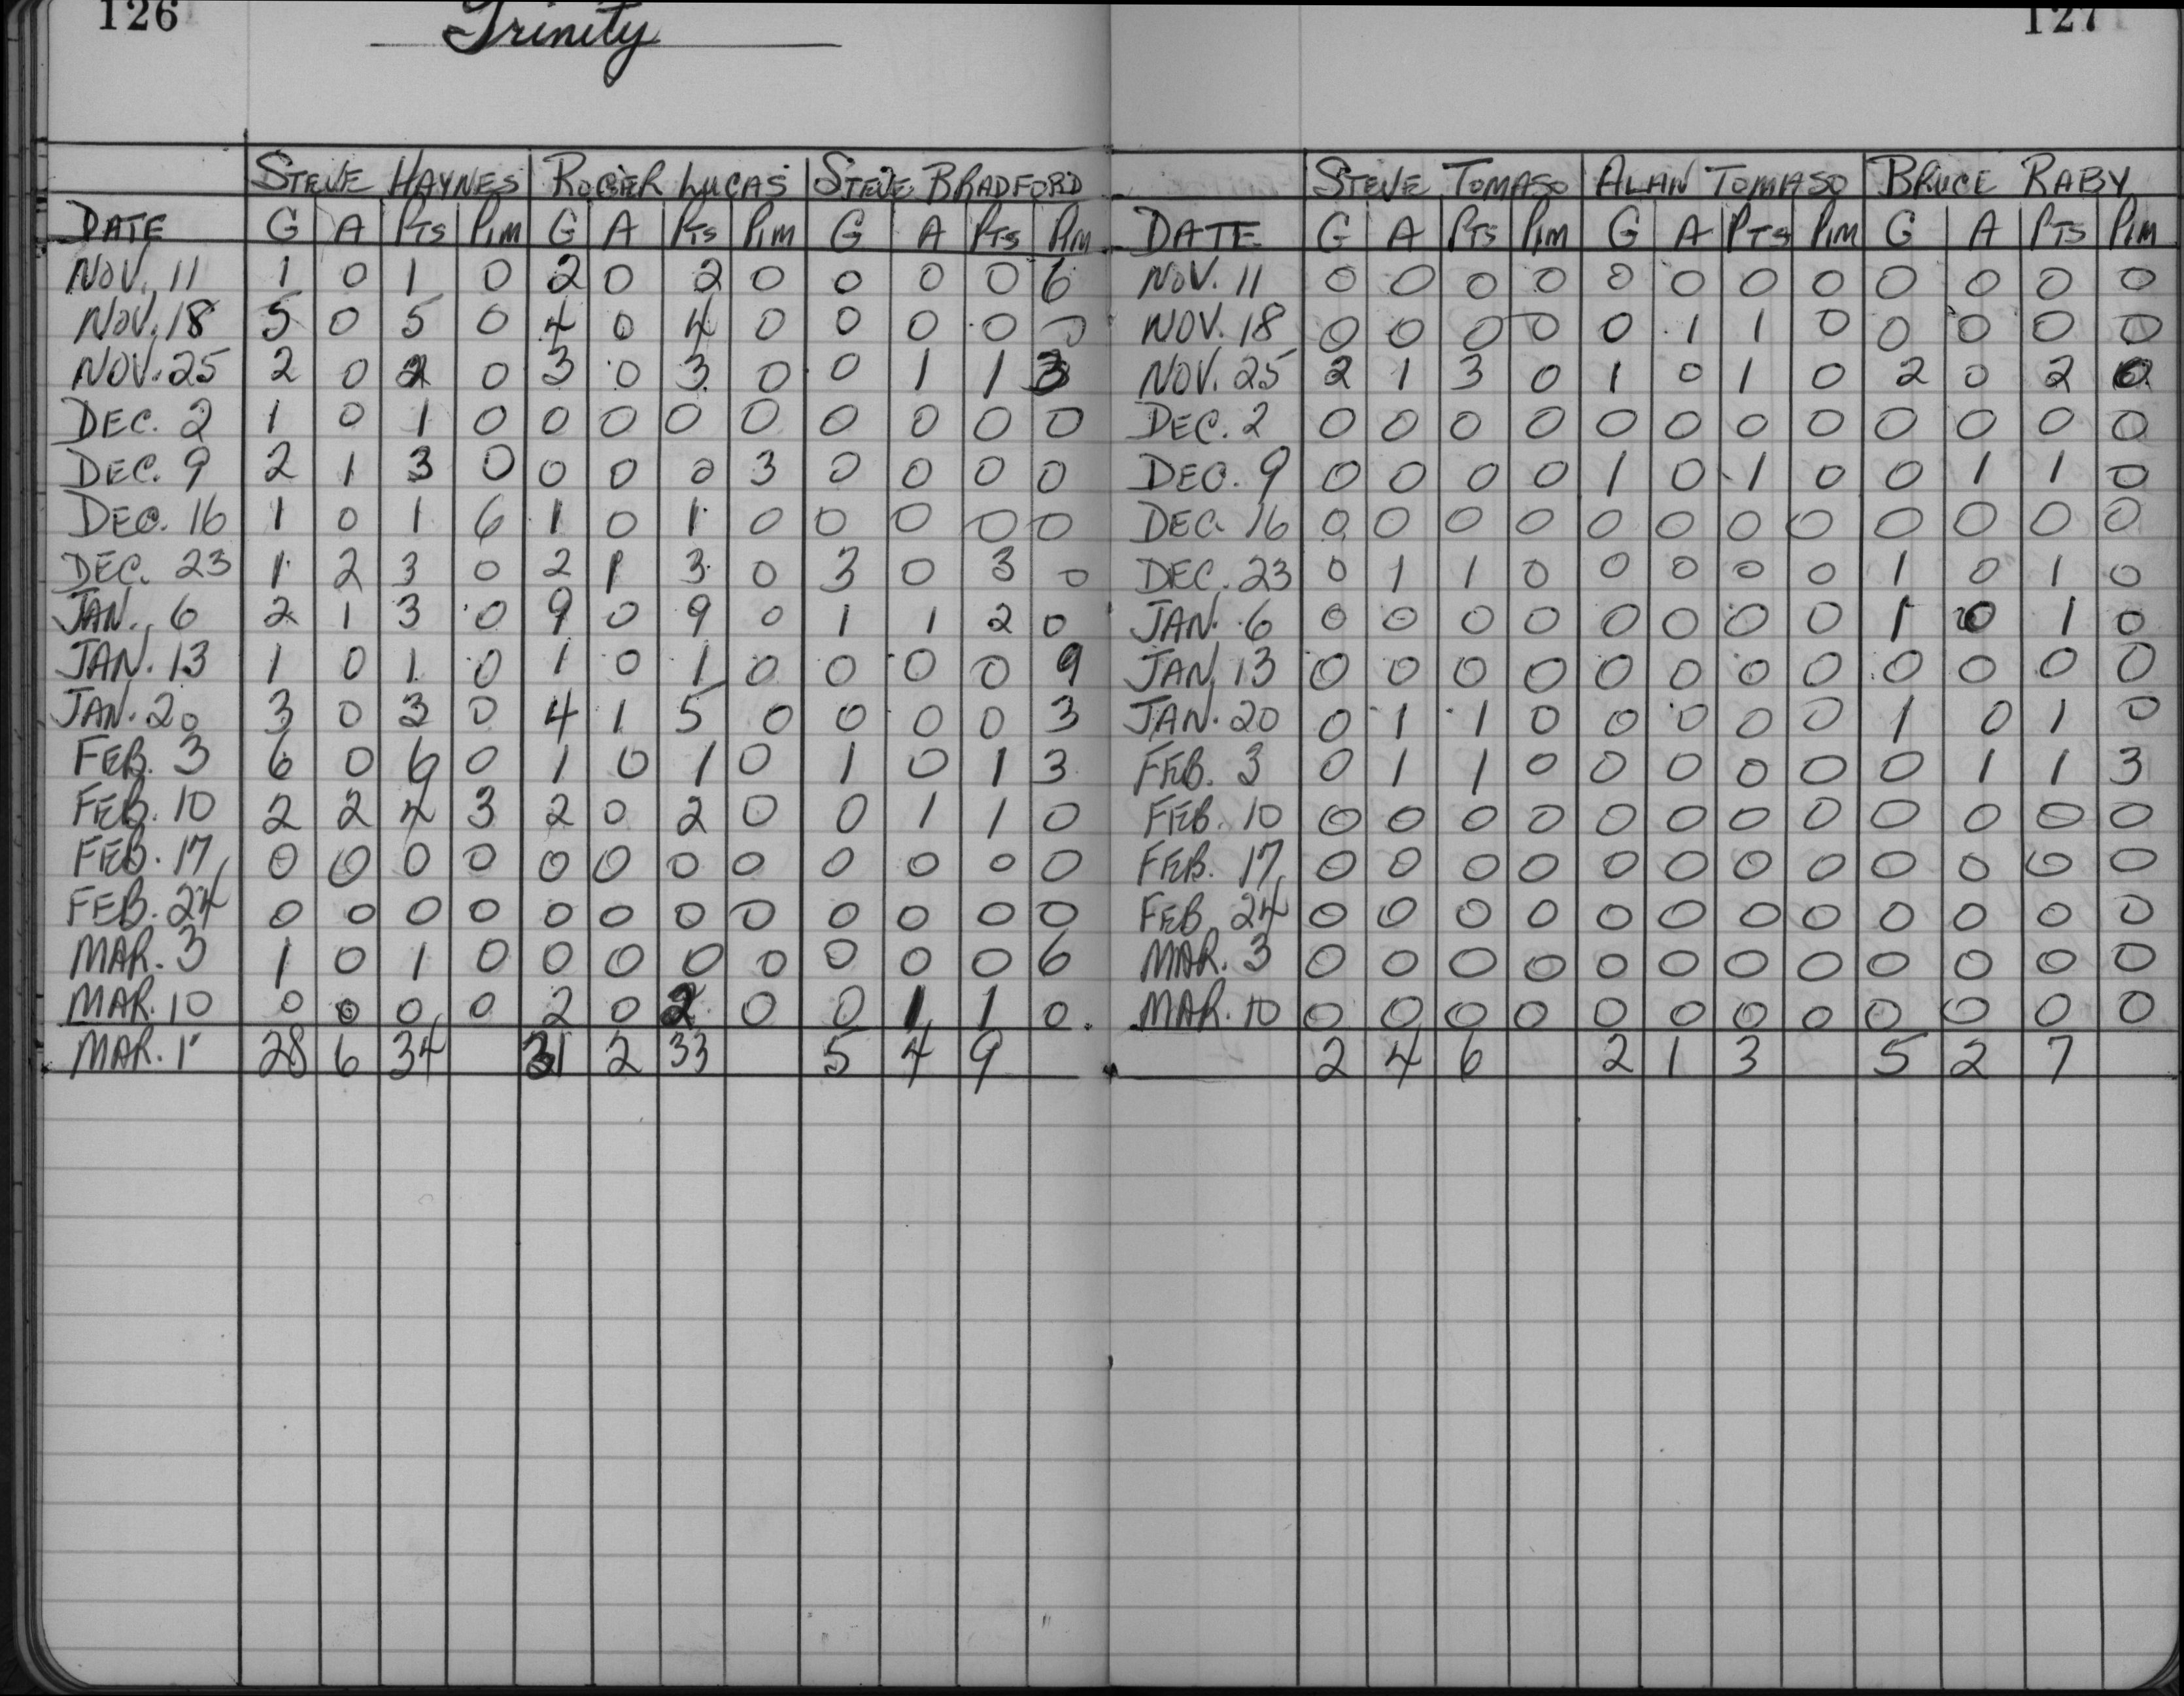 126
Trinity
STEVE HAYNES ROGER LUCAS STEVE BRADFORD
DATE G A PTS PIM G A PTS PIM G A PTS PIM
NOV. 11 1 0 1 0 2 0 2 0 0 0 0 6
NOV. 18 5 0 5 0 4 0 4 0 0 0 0 0
NOV. 25 2 0 2 0 3 0 3 0 0 1 1 3
DEC. 2 1 0 1 0 0 0 0 0 0 0 0 0
DEC. 9 2 1 3 0 0 0 0 3 0 0 0 0
DEC. 16 1 0 1 6 1 0 1 0 0 0 0 0
DEC. 23 1 2 3 0 2 1 3 0 3 0 3 0
JAN. 6 2 1 3 0 9 0 9 0 1 1 2 0
JAN. 13 1 0 1 0 1 0 1 0 0 0 0 9
JAN. 20 3 0 3 0 4 1 5 0 0 0 0 3
FEB. 3 6 0 6 0 1 0 1 0 1 0 1 3
FEB. 10 2 2 4 3 2 0 2 0 0 1 1 0
FEB. 17 0 0 0 0 0 0 0 0 0 0 0 0
FEB. 24 0 0 0 0 0 0 0 0 0 0 0 0
MAR. 3 1 0 1 0 0 0 0 0 0 0 0 6
MAR. 10 0 0 0 0 2 0 2 0 0 1 1 0
MAR. 28 6 34 31 2 33 5 4 9
127
STEVE TOMASO ALAN TOMASO BRUCE RABY
DATE G A PTS PIM G A PTS PIM G A PTS PIM
NOV. 11 0 0 0 0 0 0 0 0 0 0 0 0
NOV. 18 0 0 0 0 0 1 1 0 0 0 0 0
NOV. 25 2 1 3 0 1 0 1 0 2 0 2 0
DEC. 2 0 0 0 0 0 0 0 0 0 0 0 0
DEC. 9 0 0 0 0 1 0 1 0 0 1 1 0
DEC. 16 0 0 0 0 0 0 0 0 0 0 0 0
DEC. 23 0 1 1 0 0 0 0 0 1 0 1 0
JAN. 6 0 0 0 0 0 0 0 0 1 0 1 0
JAN. 13 0 0 0 0 0 0 0 0 0 0 0 0
JAN. 20 0 1 1 0 0 0 0 0 1 0 1 0
FEB. 3 0 1 1 0 0 0 0 0 0 1 1 3
FEB. 10 0 0 0 0 0 0 0 0 0 0 0 0
FEB. 17 0 0 0 0 0 0 0 0 0 0 0 0
FEB. 24 0 0 0 0 0 0 0 0 0 0 0 0
MAR. 3 0 0 0 0 0 0 0 0 0 0 0 0
MAR. 10 0 0 0 0 0 0 0 0 0 0 0 0
2 4 6 2 1 3 5 2 7